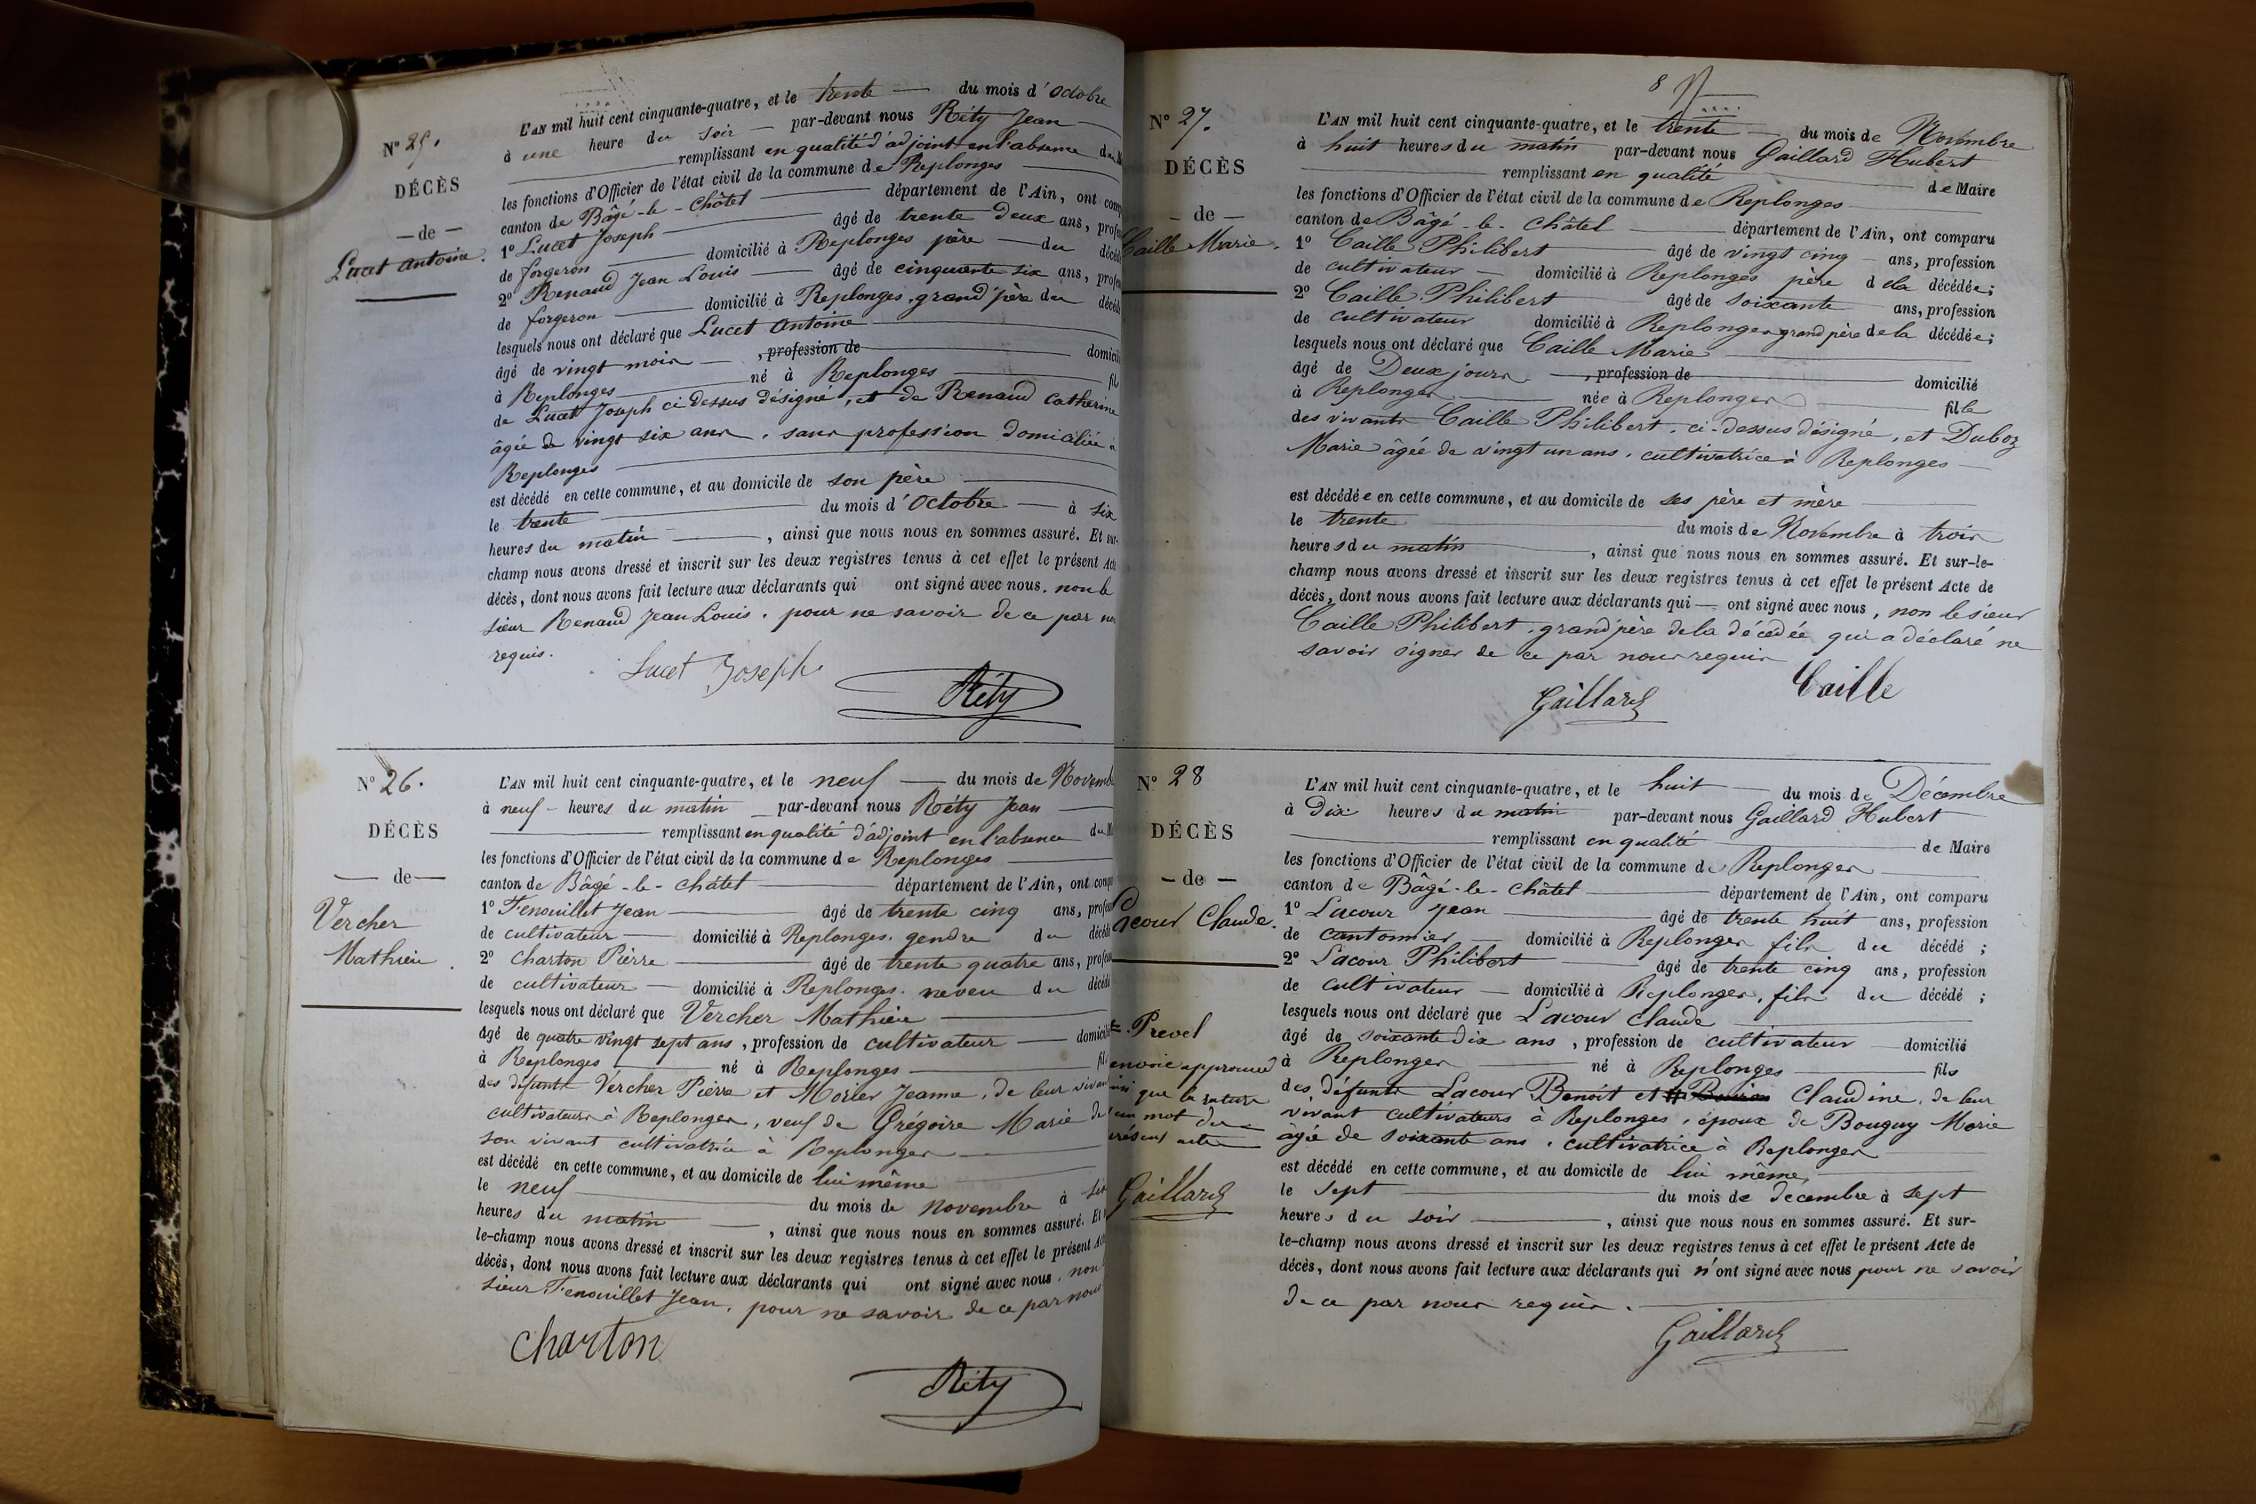 N° 25.
DÉCÈS
— de —
Lucet Antoine.
L'AN mil huit cent cinquante-quatre, et le trente du mois d'Octobre
à une heure du soir par-devant nous Réty Jean
remplissant en qualité d'adjoint en l'absence du
les fonctions d'Officier de l'état civil de la commune de Replonges
canton de Bâgé-le-Châtel département de l'Ain, ont comp
1° Lucet Joseph âgé de trente deux ans, profes
de forgeron domicilié à Replonges père du décéd
2° Renaud Jean Louis âgé de cinquante six ans, profes
de forgeron domicilié à Replonges, grand'père du décéd
lesquels nous ont déclaré que Lucet Antoine
âgé de vingt mois, profession de domicili
à Replonges né à Replonges fil
de Lucet Joseph ci dessus désigné, et de Renaud Catherine
âgée de vingt six ans, sans profession domiciliée à
Replonges
est décédé en cette commune, et au domicile de son père
le trente du mois d'Octobre à six
heures du matin, ainsi que nous nous en sommes assuré. Et sur-
champ nous avons dressé et inscrit sur les deux registres tenus à cet effet le présent Acte
décès, dont nous avons fait lecture aux déclarants qui ont signé avec nous, non le
sieur Renaud Jean Louis, pour ne savoir de ce par nous
requis.
Lucet Joseph
Réty
N° 26.
DÉCÈS
— de —
Vercher
Mathieu.
L'AN mil huit cent cinquante-quatre, et le neuf du mois de Novemb
à neuf heures du matin par-devant nous Réty Jean
remplissant en qualité d'adjoint en l'absence du M
les fonctions d'Officier de l'état civil de la commune de Replonges
canton de Bâgé-le-châtel département de l'Ain, ont comp
1° Fenouillet Jean âgé de trente cinq ans, profes
de cultivateur domicilié à Replonges, gendre du décéd
2° Charton Pierre âgé de trente quatre ans, profes
de cultivateur domicilié à Replonges, neveu du décédé
lesquels nous ont déclaré que Vercher Mathieu
âgé de quatre vingt sept ans, profession de cultivateur domicilié
à Replonges né à Replonges fil
des défunts Vercher Pierre et Morier Jeanne, de leur vivan
cultivateurs à Replonges, veuf de Grégoire Marie de
son vivant cultivatrice à Replonges
est décédé en cette commune, et au domicile de lui même
le neuf du mois de novembre à six
heures du matin, ainsi que nous nous en sommes assuré. Et
le-champ nous avons dressé et inscrit sur les deux registres tenus à cet effet le présent Acte
décès, dont nous avons fait lecture aux déclarants qui ont signé avec nous, non
sieur Fenouillet Jean, pour ne savoir de ce par nous
charton
Réty
8
N° 27.
DÉCÈS
— de —
Caille Marie.
L'AN mil huit cent cinquante-quatre, et le trente du mois de Novembre
à huit heures du matin par-devant nous Gaillard Hubert
remplissant en qualité de Maire
les fonctions d'Officier de l'état civil de la commune de Replonges
canton de Bâgé-le-Châtel département de l'Ain, ont comparu
1° Caille Philibert âgé de vingt cinq ans, profession
de cultivateur domicilié à Replonges père de la décédée;
2° Caille Philibert âgé de soixante ans, profession
de cultivateur domicilié à Replonges grand père de la décédée;
lesquels nous ont déclaré que Caille Marie
âgé de Deux jours, profession de domicilié
à Replonges née à Replonges fille
des vivants Caille Philibert, ci-dessus désigné, et Duboz
Marie âgée de vingt un ans, cultivatrice à Replonges
est décédée en cette commune, et au domicile de ses père et mère
le trente du mois de Novembre à trois
heures du matin, ainsi que nous nous en sommes assuré. Et sur-le-
champ nous avons dressé et inscrit sur les deux registres tenus à cet effet le présent Acte de
décès, dont nous avons fait lecture aux déclarants qui ont signé avec nous, non le sieur
Caille Philibert, grand'père de la décédée qui a déclaré ne
savoir signer de ce par nous requis
Gaillard
Caille
N° 28
DÉCÈS
— de —
Lacour Claude.
Prevel
envoie approuvé
ainsi que la rature
d'un mot du
présent acte
Gaillard
L'AN mil huit cent cinquante-quatre, et le huit du mois de Décembre
à Dix heures du matin par-devant nous Gaillard Hubert
remplissant en qualité de Maire
les fonctions d'Officier de l'état civil de la commune de Replonges
canton de Bâgé-le-Châtel département de l'Ain, ont comparu
1° Lacour Jean âgé de trente huit ans, profession
de cantonnier domicilié à Replonges fils du décédé;
2° Lacour Philibert âgé de trente cinq ans, profession
de cultivateur domicilié à Replonges, fils du décédé;
lesquels nous ont déclaré que Lacour Claude
âgé de soixante dix ans, profession de cultivateur domicilié
à Replonges né à Replonges fils
des défunts Lacour Benoît et Claudine, de leur
vivant cultivateurs à Replonges, époux de Bouguy Marie
âgée de soixante ans, cultivatrice à Replonges
est décédé en cette commune, et au domicile de lui même
le sept du mois de decembre à sept
heures du soir, ainsi que nous nous en sommes assuré. Et sur-
le-champ nous avons dressé et inscrit sur les deux registres tenus à cet effet le présent Acte de
décès, dont nous avons fait lecture aux déclarants qui n'ont signé avec nous pour ne savoir
de ce par nous requis.
Gaillard